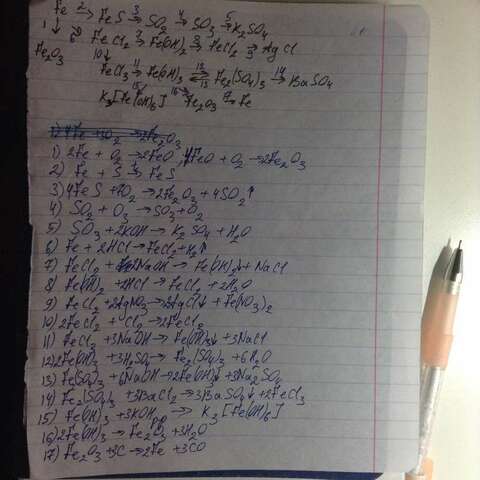 Fe 2→ FeS 3→ SO₂ 4→ SO₃ 5→ K₂SO₄
1↓ 6 FeCl₂ 7→ Fe(OH)₂ 8→ FeCl₂ 9→ AgCl
Fe₂O₃ 10↓
FeCl₃ 11→ Fe(OH)₃ 12⇌13 Fe₂(SO₄)₃ 14→ BaSO₄
K₃[Fe(OH)₆] 15 16 Fe₂O₃ → Fe
1) 4Fe + 3O₂ → 2Fe₂O₃
1) 2Fe + O₂ → 2FeO, 4FeO + O₂ → 2Fe₂O₃
2) Fe + S → FeS
3) 4FeS + 7O₂ → 2Fe₂O₃ + 4SO₂↑
4) SO₂ + O₃ → SO₃ + O₂
5) SO₃ + 2KOH → K₂SO₄ + H₂O
6) Fe + 2HCl → FeCl₂ + H₂↑
7) FeCl₂ + NaOH → Fe(OH)₂↓ + NaCl
8) Fe(OH)₂ + 2HCl → FeCl₂ + 2H₂O
9) FeCl₂ + 2AgNO₃ → 2AgCl↓ + Fe(NO₃)₂
10) 2FeCl₂ + Cl₂ → 2FeCl₃
11) FeCl₃ + 3NaOH → Fe(OH)₃↓ + 3NaCl
12) 2Fe(OH)₃ + 3H₂SO₄ → Fe₂(SO₄)₃ + 6H₂O
13) Fe(SO₄)₃ + 6NaOH → 2Fe(OH)₃↓ + 3Na₂SO₄
14) Fe₂(SO₄)₃ + 3BaCl₂ → 3BaSO₄↓ + 2FeCl₃
15) Fe(OH)₃ + 3KOH → K₃[Fe(OH)₆]
16) 2Fe(OH)₃ → Fe₂O₃ + 3H₂O
17) Fe₂O₃ + 3C → 2Fe + 3CO